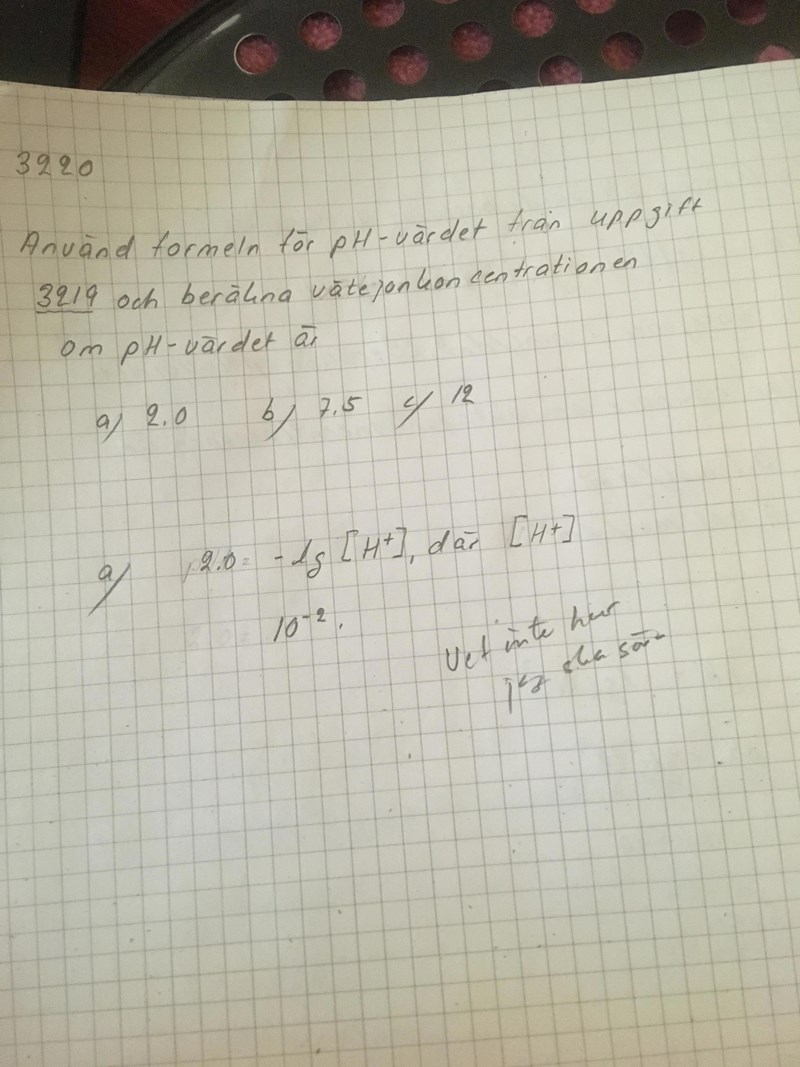 3220
Använd formeln för pH-värdet från uppgift
3219 och beräkna vätejonkoncentrationen
om pH-värdet är
a) 2.0 b) 7.5 c) 12
a) 2.0 = -lg [H+], där [H+]
10-2.
Vet inte hur
jag ska